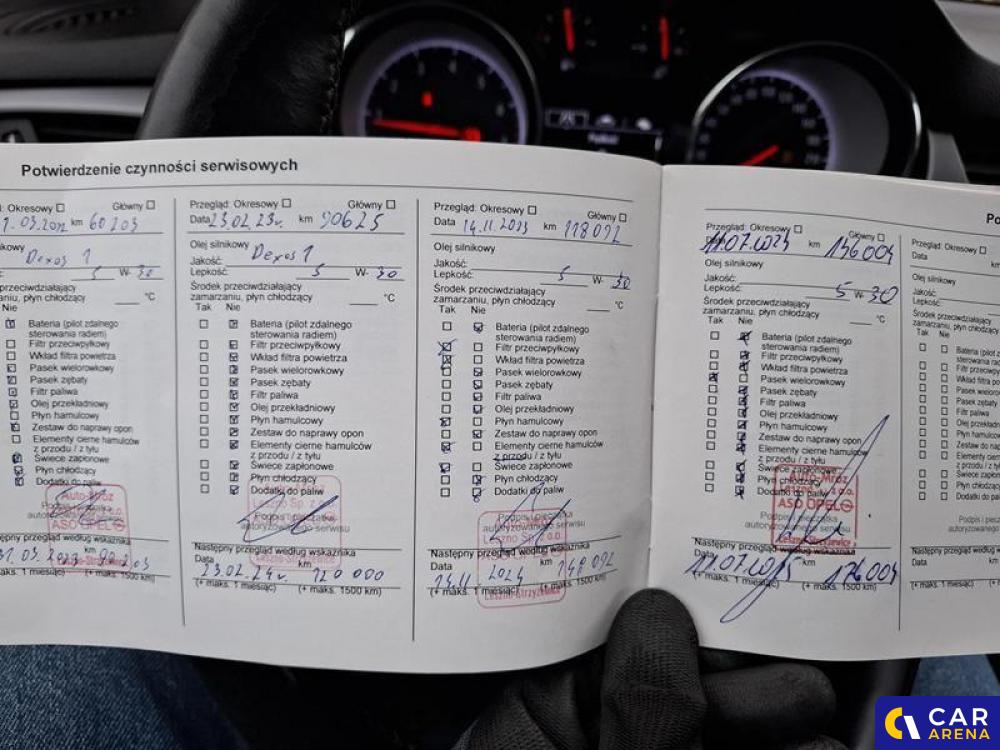 Potwierdzenie czynności serwisowych
d: Okresowy ☐ Główny ☐
1.03.2022 km 60203
kowy Dexos 1
5 W- 30
przeciwdziałający
zaniu, płyn chłodzący °C
Nie
Bateria (pilot zdalnego
sterowania radiem)
Filtr przeciwpyłkowy
Wkład filtra powietrza
Pasek wielorowkowy
Pasek zębaty
Filtr paliwa
Olej przekładniowy
Płyn hamulcowy
Zestaw do naprawy opon
Elementy cierne hamulców
z przodu / z tyłu
Świece zapłonowe
Płyn chłodzący
Dodatki do paliw
Auto-Mróz
ASO OPEL
ępny przegląd według wskaźnika
31.03.2023 km
aks. 1 miesiąc) (+ maks. 1500 km)
Przegląd: Okresowy ☐ Główny ☐
Data 23.02.23r. km 90625
Olej silnikowy
Jakość: Dexos 1
Lepkość: 5 W- 30
Środek przeciwdziałający
zamarzaniu, płyn chłodzący °C
Tak Nie
Bateria (pilot zdalnego
sterowania radiem)
Filtr przeciwpyłkowy
Wkład filtra powietrza
Pasek wielorowkowy
Pasek zębaty
Filtr paliwa
Olej przekładniowy
Płyn hamulcowy
Zestaw do naprawy opon
Elementy cierne hamulców
z przodu / z tyłu
Świece zapłonowe
Płyn chłodzący
Dodatki do paliw
Leszno Sp. z o.o.
Podpis i pieczątka
autoryzowanego serwisu
Następny przegląd według wskaźnika
Data km
23.02.24r. 120 000
(+ maks. 1 miesiąc) (+ maks. 1500 km)
Przegląd: Okresowy ☐ Główny ☐
Data 14.11.2023 km 118092
Olej silnikowy
Jakość:
Lepkość: 5 W- 30
Środek przeciwdziałający
zamarzaniu, płyn chłodzący °C
Tak Nie
Bateria (pilot zdalnego
sterowania radiem)
Filtr przeciwpyłkowy
Wkład filtra powietrza
Pasek wielorowkowy
Pasek zębaty
Filtr paliwa
Olej przekładniowy
Płyn hamulcowy
Zestaw do naprawy opon
Elementy cierne hamulców
z przodu / z tyłu
Świece zapłonowe
Płyn chłodzący
Dodatki do paliw
Podpis i pieczątka
autoryzowanego serwisu
Leszno Sp. z o.o.
Następny przegląd według wskaźnika
Data km
14.11.2024 148092
(+ maks. 1 miesiąc) (+ maks. 1500 km)
Leszno-Strzyżewice
Po
Przegląd: Okresowy ☐ Główny ☐
11.07.2024 km 156004
Olej silnikowy
Jakość:
Lepkość: 5 W- 30
Środek przeciwdziałający
zamarzaniu, płyn chłodzący °C
Tak Nie
Bateria (pilot zdalnego
sterowania radiem)
Filtr przeciwpyłkowy
Wkład filtra powietrza
Pasek wielorowkowy
Pasek zębaty
Filtr paliwa
Olej przekładniowy
Płyn hamulcowy
Zestaw do naprawy opon
Elementy cierne hamulców
z przodu / z tyłu
Świece zapłonowe
Płyn chłodzący
Dodatki do paliw
Auto-Mróz
Leszno Sp. z o.o.
ASO OPEL
Podpis i pieczątka
autoryzowanego serwisu
Leszno-Strzyżewice
Następny przegląd według wskaźnika
Data 11.07.2025 km 176004
(+ maks. 1 miesiąc) (+ maks. 1500 km)
Przegląd: Okresowy ☐
Data km
Olej silnikowy
Jakość:
Lepkość:
Środek przeciwdziałający
zamarzaniu, płyn chłodzą
Tak Nie
Bateria (pilot z
sterowania rad
Filtr przeciwpył
Wkład filtra po
Pasek wielorow
Pasek zębaty
Filtr paliwa
Olej przekładni
Płyn hamulcow
Zestaw do nap
Elementy ciern
z przodu / z tył
Świece zapłon
Płyn chłodząc
Dodatki do pal
Podpis i
autoryzowane
Następny przegląd według
Data
(+ maks. 1 miesiąc) (+
CAR
ARENA